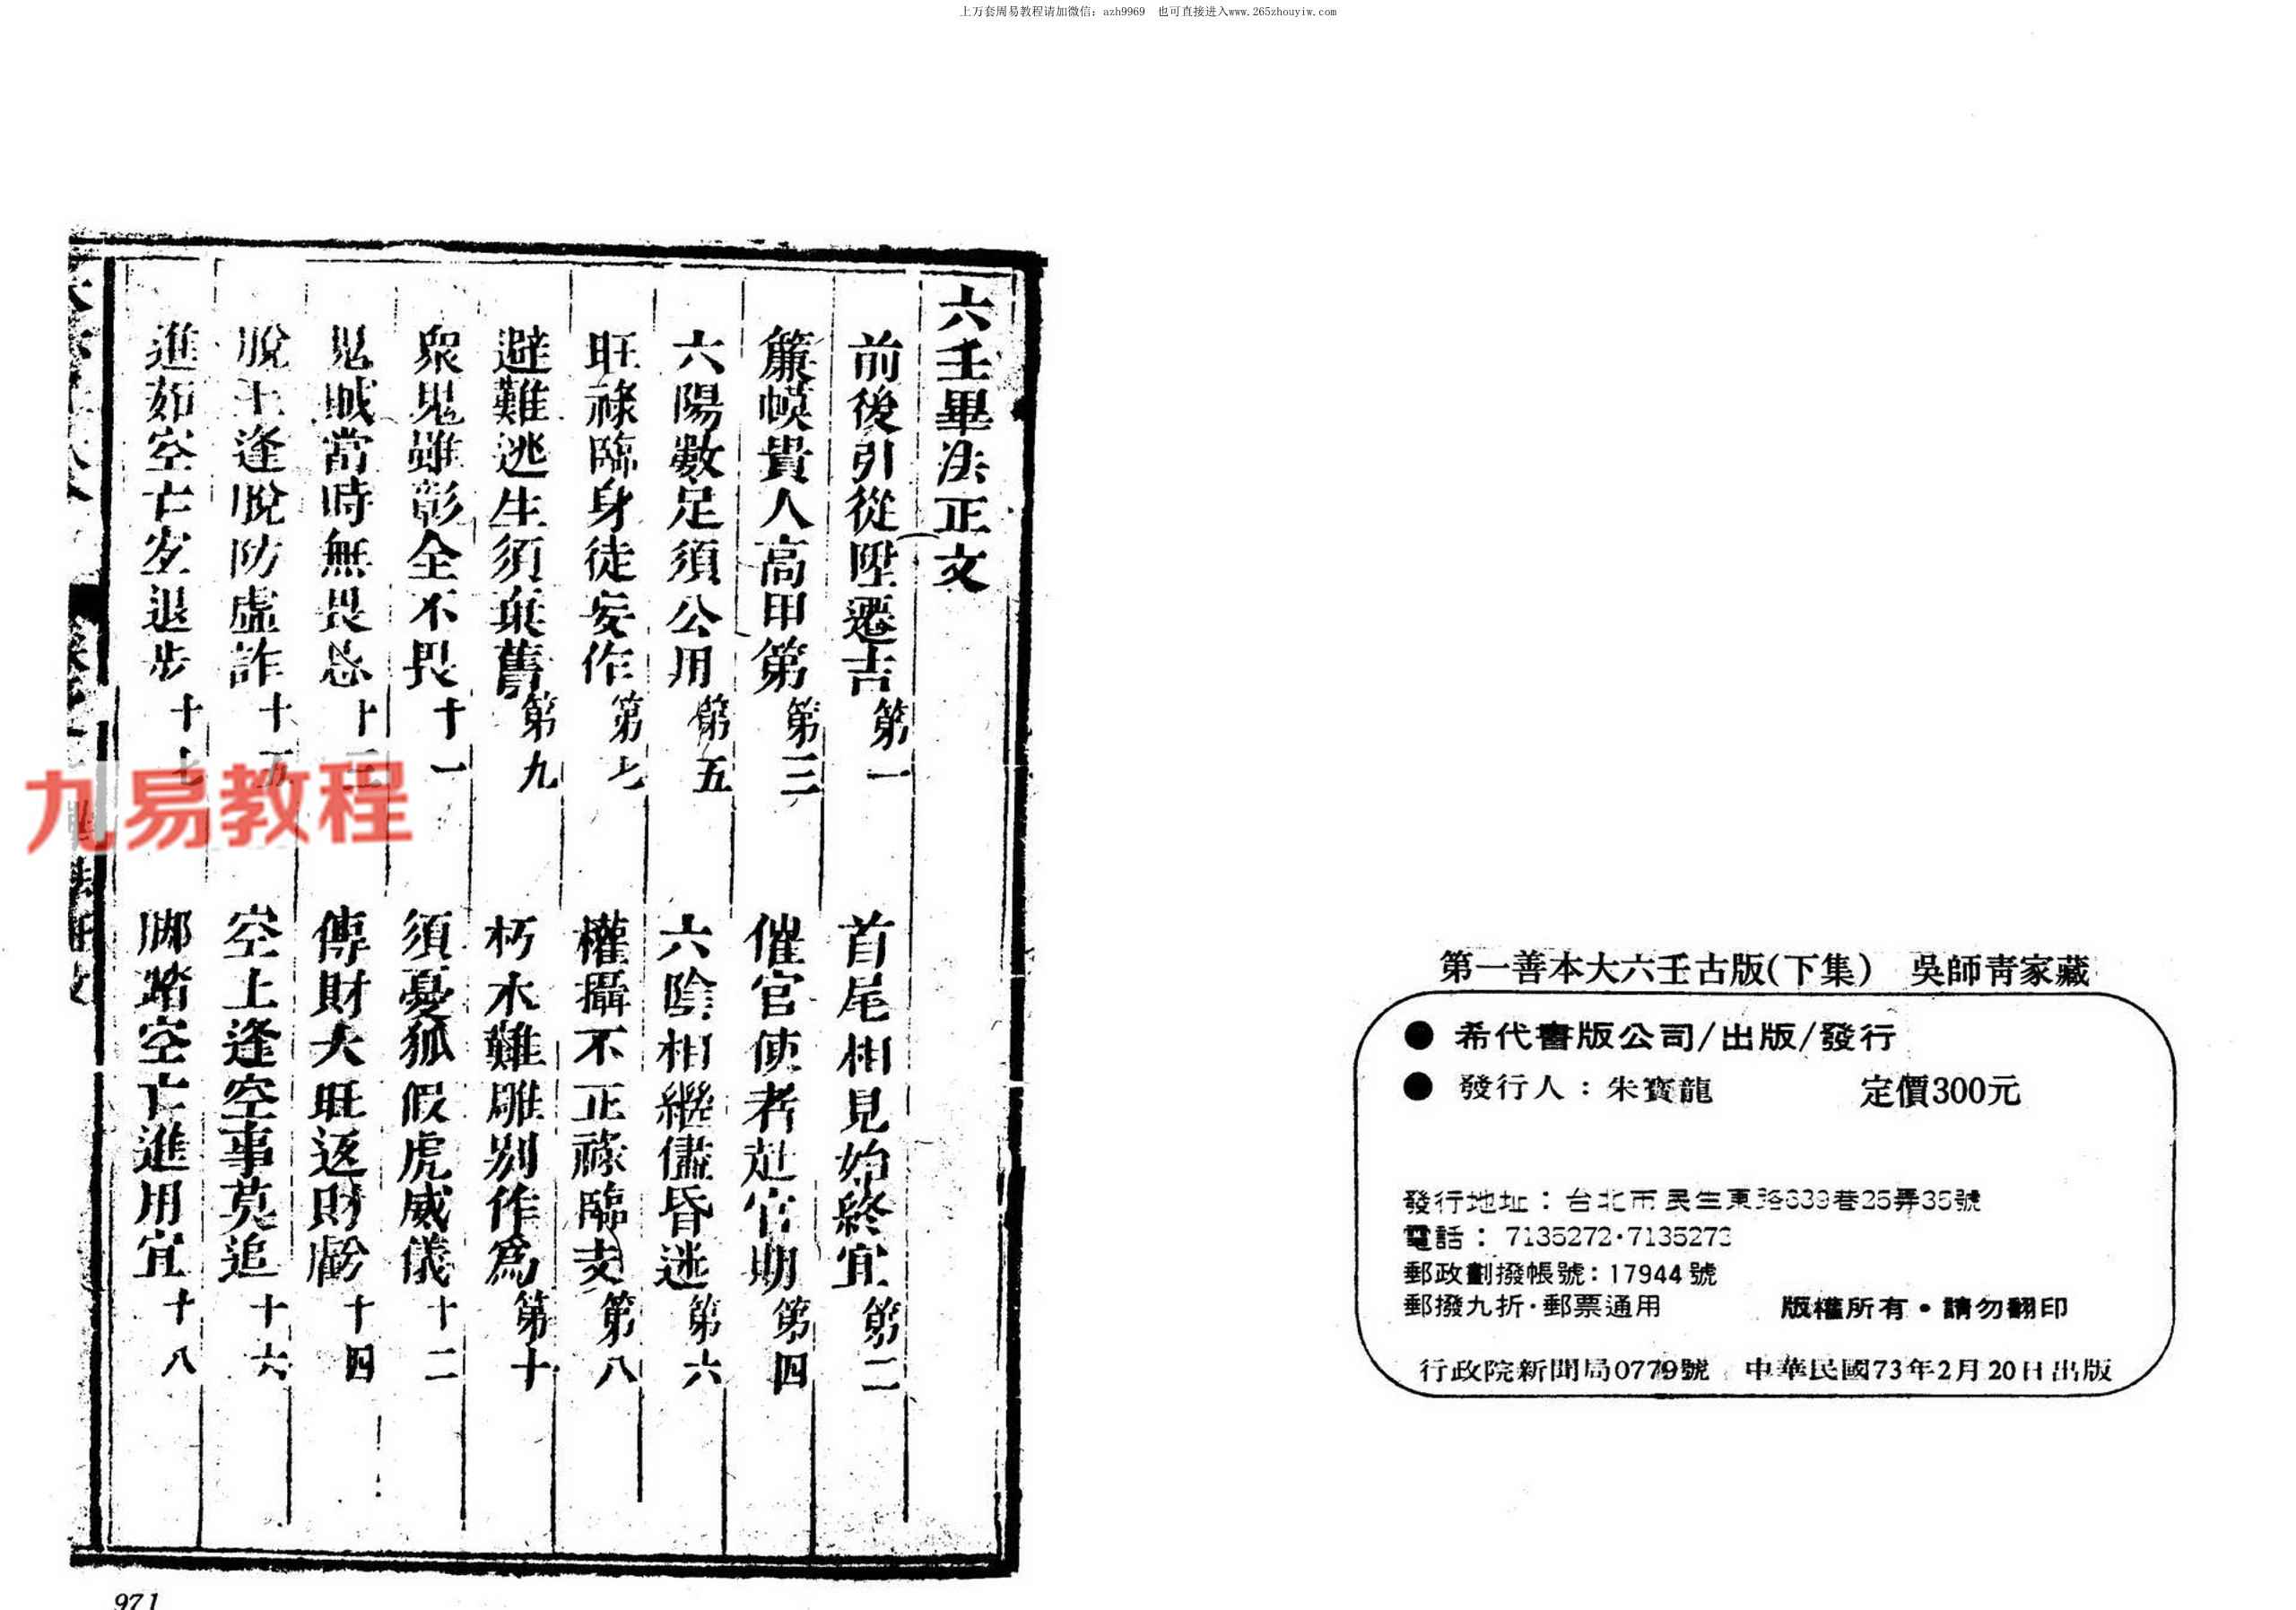 上万套周易教程请加微信：azh9969　也可直接进入www.265zhouyiw.com
六壬畢法正文
前後引從陞遷吉第一
首尾相見始終宜第二
簾幙貴人高甲第第三
催官使者赴官期第四
六陽數足須公用第五
六陰相繼儘昏迷第六
旺祿臨身徒妄作第七
權攝不正祿臨支第八
避難逃生須棄舊第九
朽木難雕別作爲第十
衆鬼雖彰全不畏十一
須憂狐假虎威儀十二
鬼賊當時無畏忌十三
傳財太旺返財虧十四
脫上逢脫防虛詐十五
空上逢空事莫追十六
進茹空亡宜退步十七
脚踏空亡進用宜十八
九易教程
971
第一善本大六壬古版(下集)　吳師靑家藏
● 希代書版公司/出版/發行
● 發行人：朱寳龍　定價300元
發行地址：台北市民生東路639巷25弄35號
電話：7135272·7135273
郵政劃撥帳號：17944號
郵撥九折·郵票通用　版權所有•請勿翻印
行政院新聞局0779號　中華民國73年2月20日出版